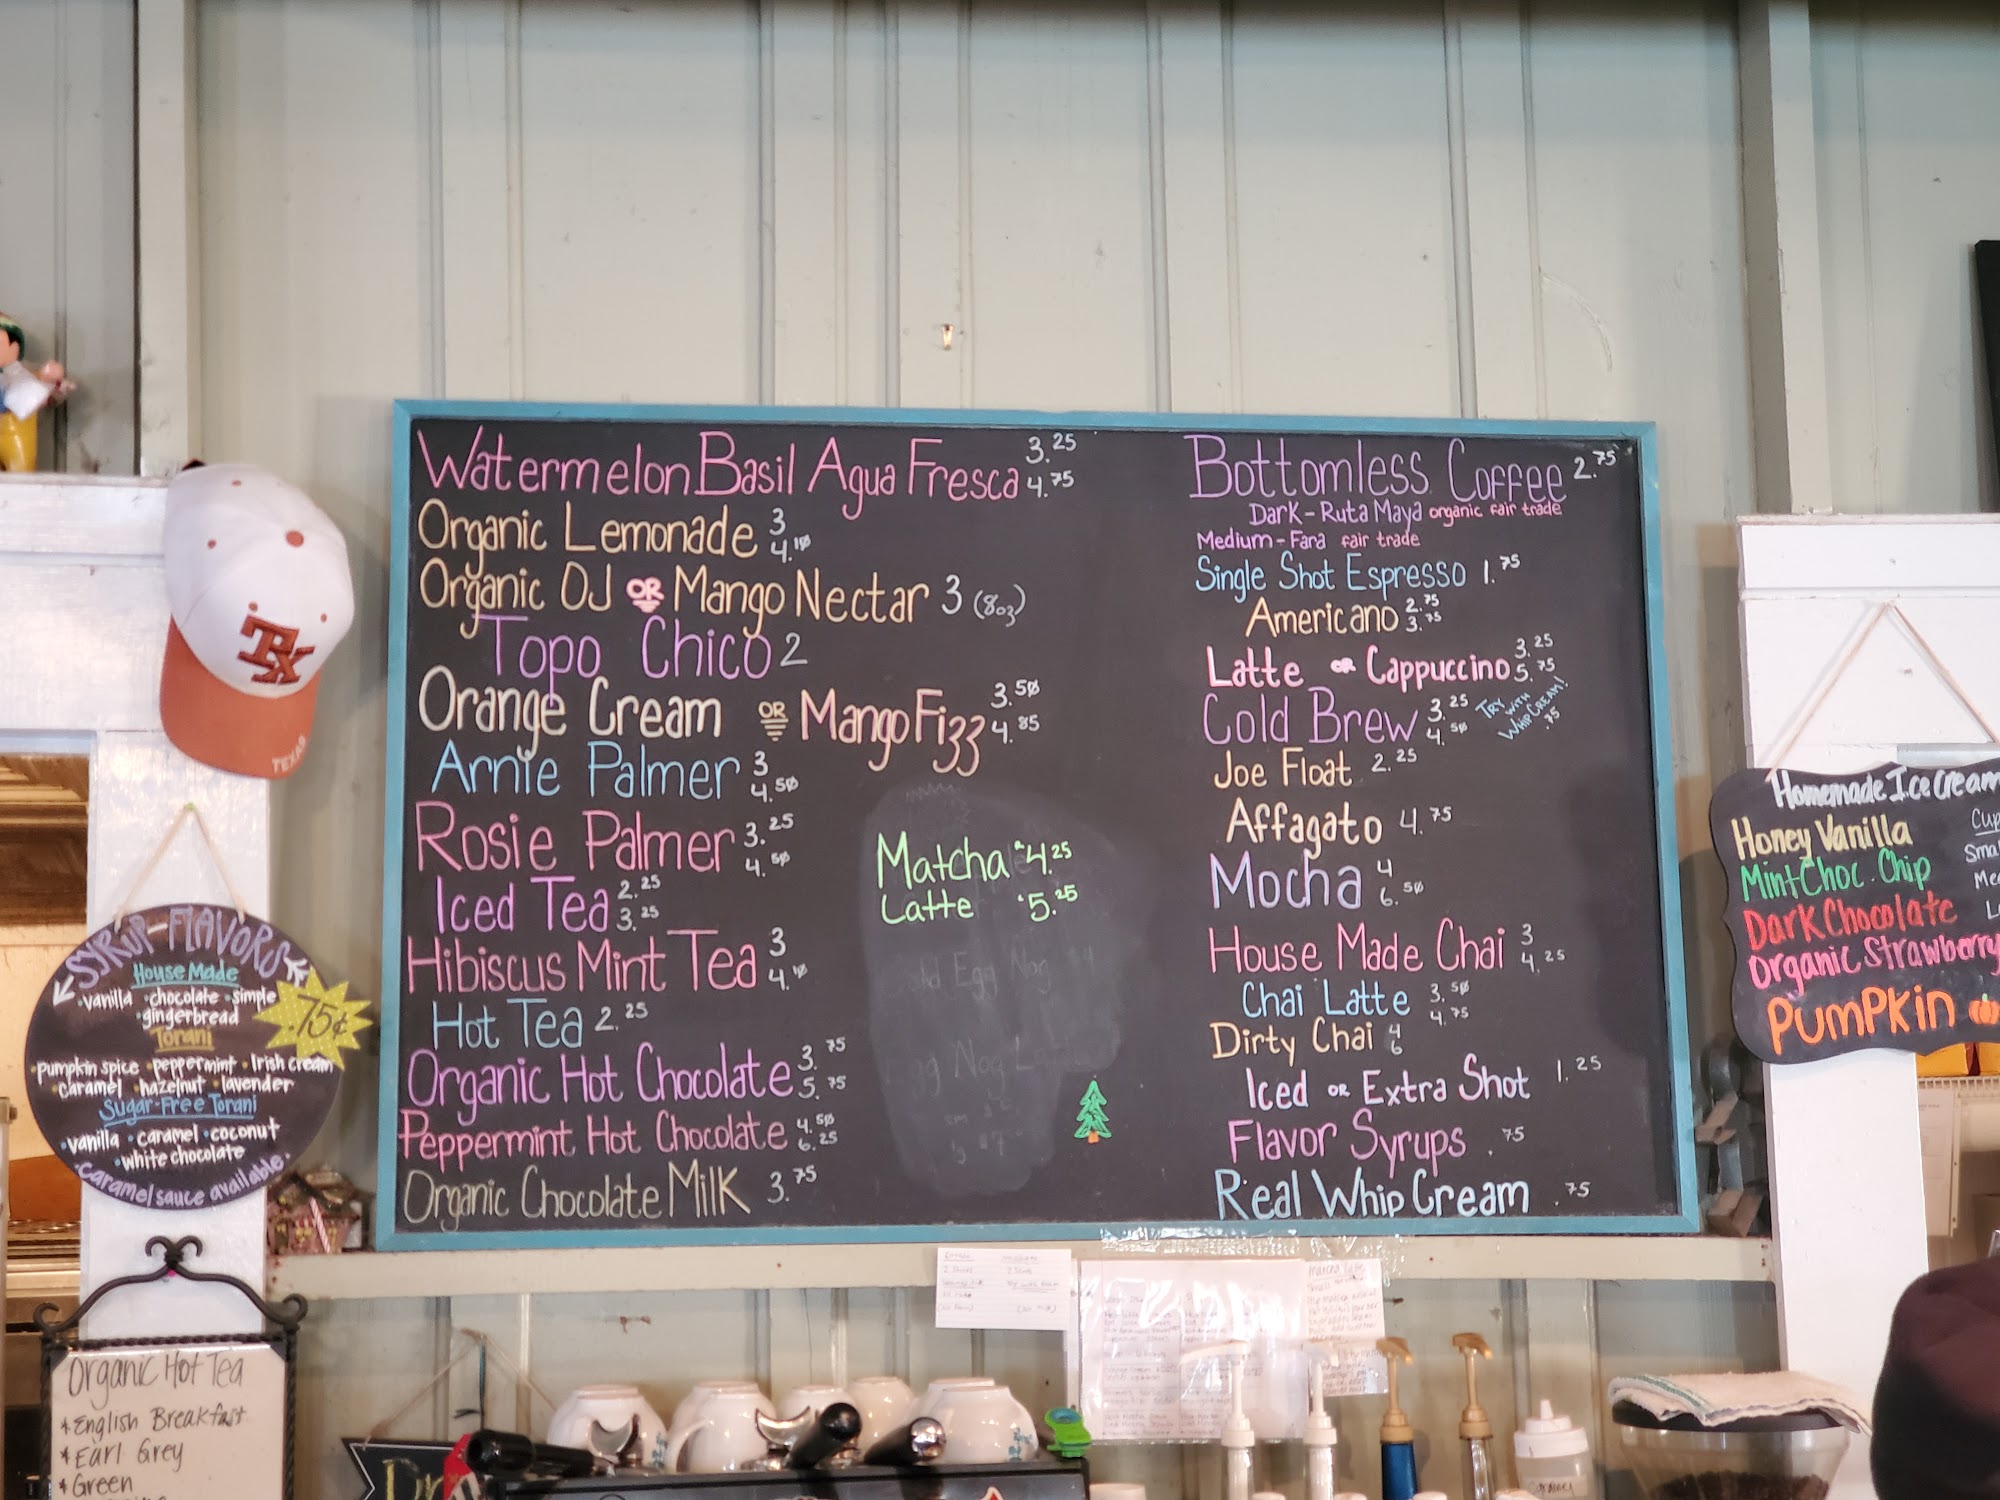 Watermelon Basil Agua Fresca 3.25 4.75
Organic Lemonade 3 4.10
Organic OJ OR Mango Nectar 3 (8oz)
Topo Chico 2
Orange Cream OR Mango Fizz 3.50 4.85
Arnie Palmer 3 4.50
Rosie Palmer 3.25 4.50
Iced Tea 2.25 3.25
Hibiscus Mint Tea 3 4.10
Hot Tea 2.25
Organic Hot Chocolate 3.75 5.75
Peppermint Hot Chocolate 4.50 6.25
Organic Chocolate Milk 3.75
Matcha 4.25
Latte 5.25
Bottomless Coffee 2.75
Dark - Ruta Maya organic fair trade
Medium - Fara fair trade
Single Shot Espresso 1.75
Americano 2.75 3.75
Latte OR Cappuccino 3.25 5.75
Cold Brew 3.25 4.50
TRY WITH WHIP CREAM! .75
Joe Float 2.25
Affagato 4.75
Mocha 4 6.50
House Made Chai 3 4.25
Chai Latte 3.50 4.75
Dirty Chai 4 6
Iced OR Extra Shot 1.25
Flavor Syrups .75
Real Whip Cream .75
TX
TEXAS
SYRUP-FLAVORS
House Made
•vanilla •chocolate •simple
•gingerbread
.75¢
Torani
•pumpkin spice •peppermint •Irish cream
•caramel •hazelnut •lavender
Sugar-Free Torani
•vanilla •caramel •coconut
•white chocolate
•caramel sauce available•
Organic Hot Tea
*English Breakfast
*Earl Grey
*Green
Homemade Ice Cream
Honey Vanilla
Mint Choc. Chip
Dark Chocolate
Organic Strawberry
PUMPKIN